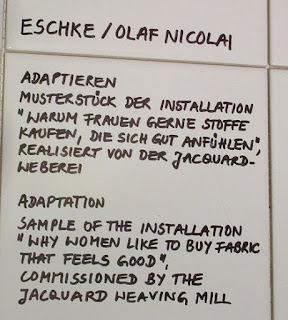 ESCHKE / OLAF NICOLAI
ADAPTIEREN
MUSTERSTÜCK DER INSTALLATION
"WARUM FRAUEN GERNE STOFFE
KAUFEN, DIE SICH GUT ANFÜHLEN",
REALISIERT VON DER JACQUARD-
WEBEREI
ADAPTATION
SAMPLE OF THE INSTALLATION
"WHY WOMEN LIKE TO BUY FABRIC
THAT FEELS GOOD",
COMMISSIONED BY THE
JACQUARD WEAVING MILL